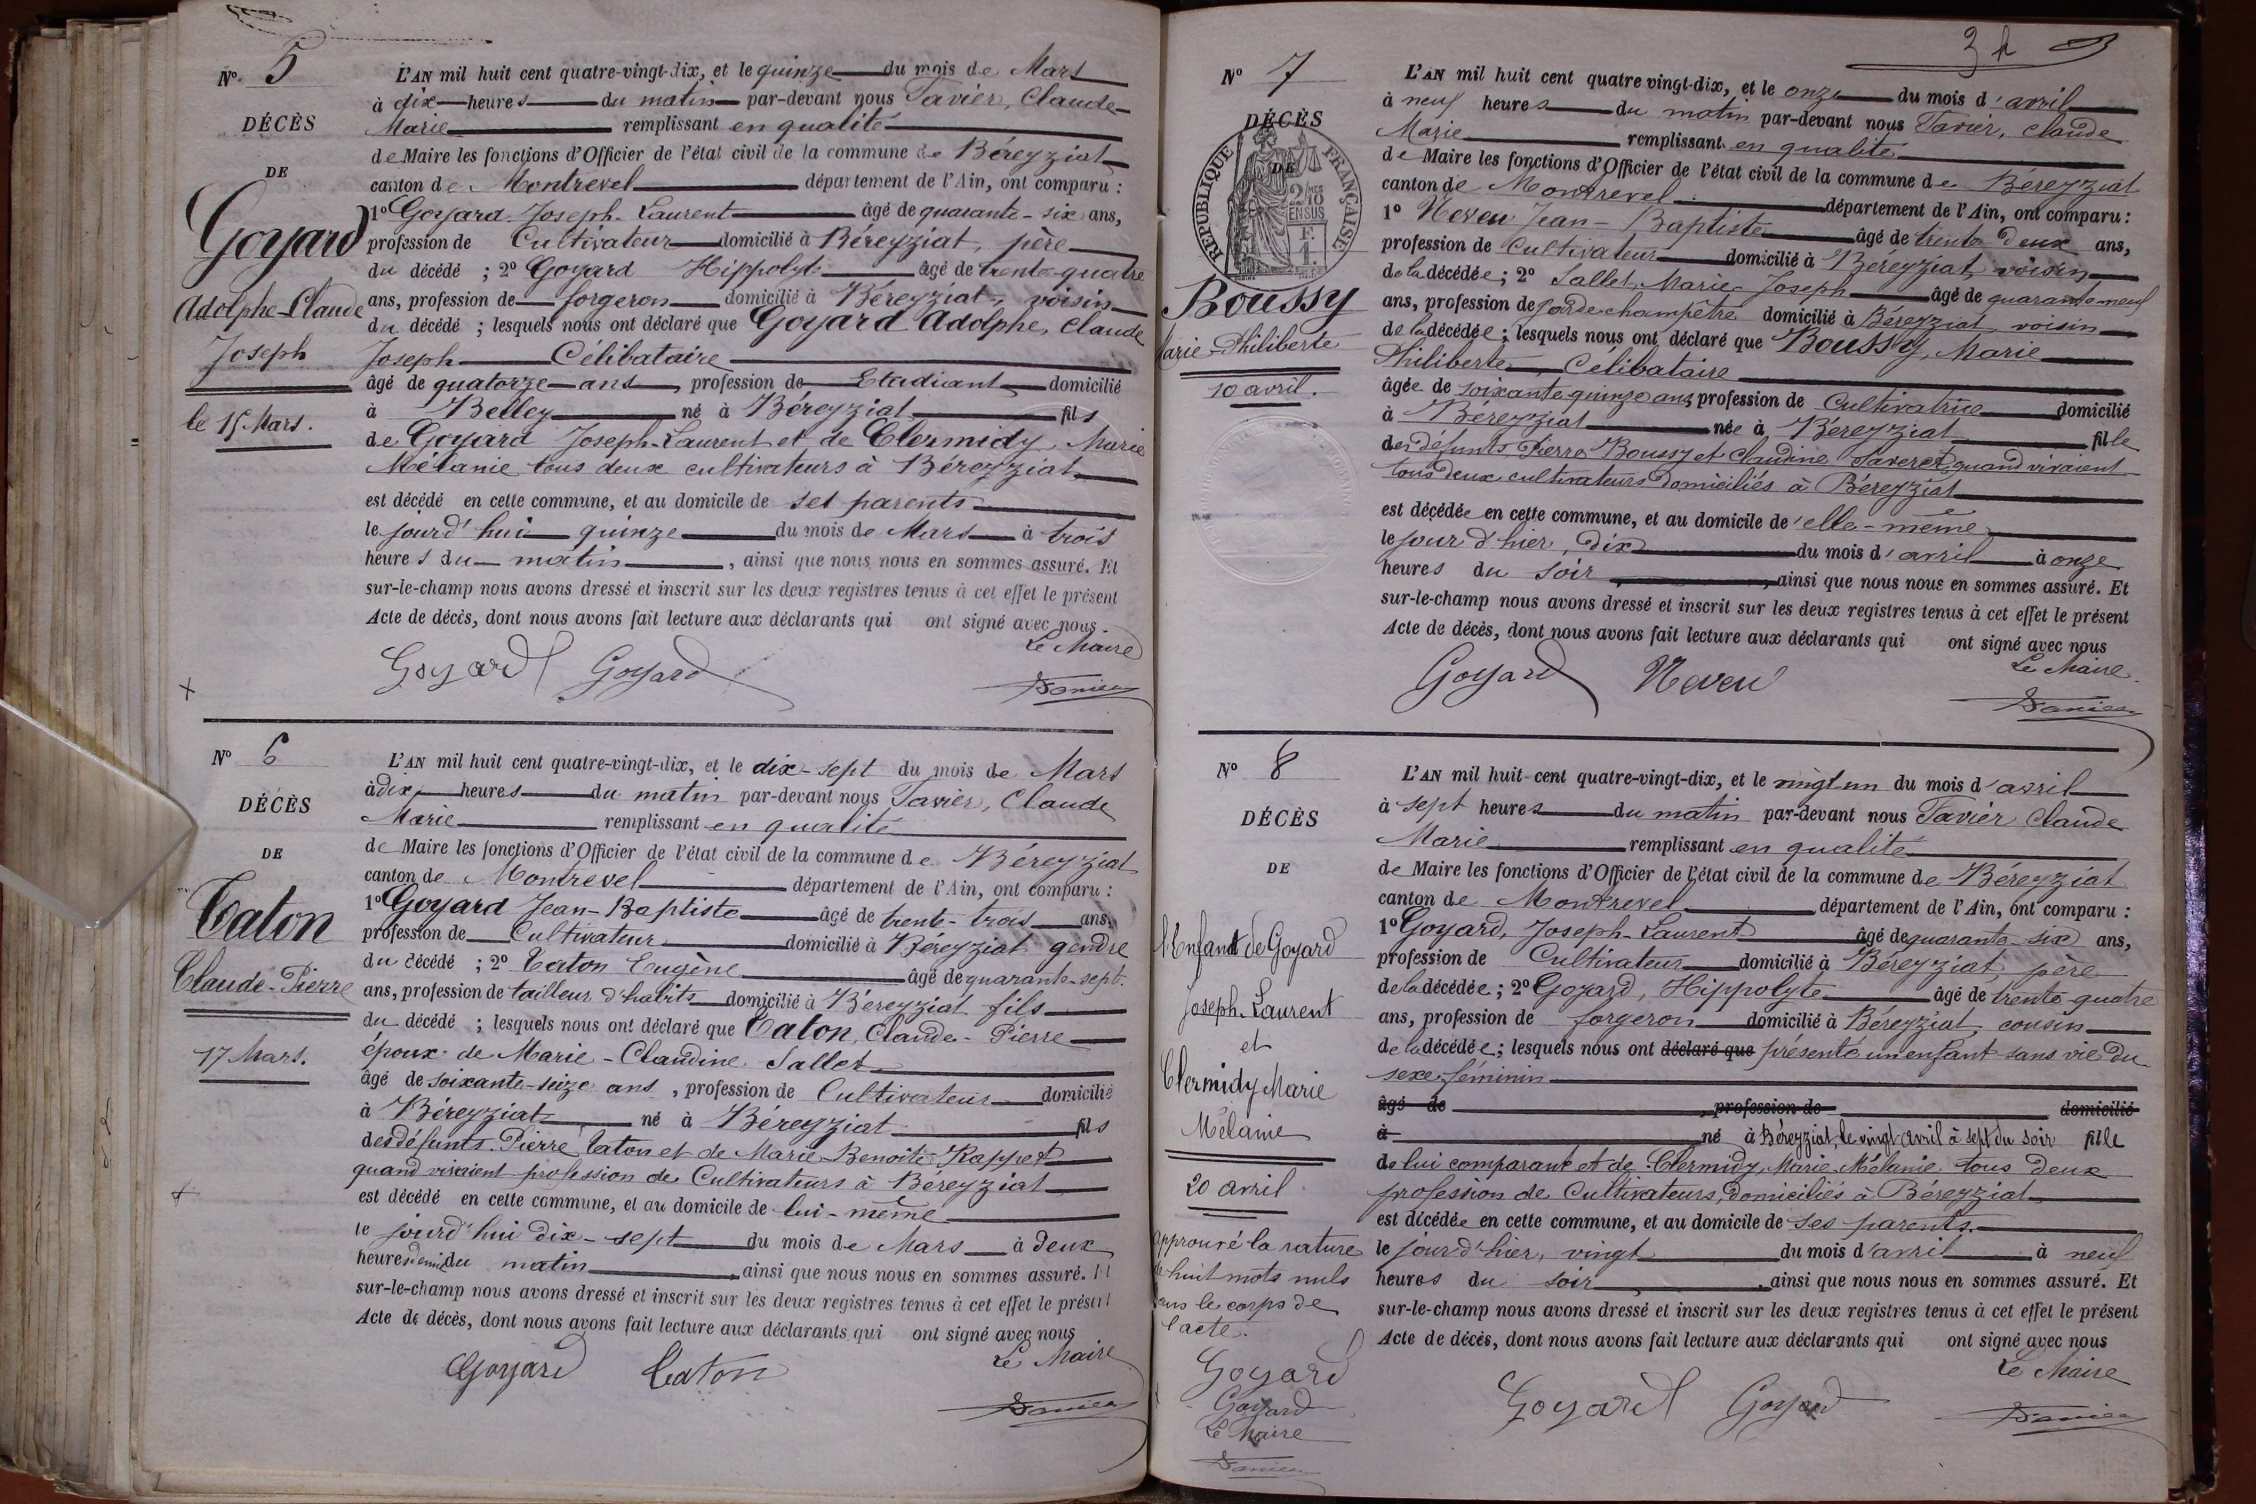 Nº 5
DÉCÈS
DE
Goyard
Adolphe-Claude
Joseph
le 15 Mars.
L'AN mil huit cent quatre-vingt-dix, et le quinze du mois de Mars
à dix heures du matin par-devant nous Favier, Claude
Marie remplissant en qualité
de Maire les fonctions d'Officier de l'état civil de la commune de Béreyziat
canton de Montrevel département de l'Ain, ont comparu :
1º Goyard Joseph-Laurent âgé de quarante-six ans,
profession de Cultivateur domicilié à Béreyziat, père
du décédé ; 2º Goyard Hippolyte âgé de trente-quatre
ans, profession de forgeron domicilié à Béreyziat, voisin
du décédé ; lesquels nous ont déclaré que Goyard Adolphe, Claude
Joseph Célibataire
âgé de quatorze ans, profession de Etudiant domicilié
à Belley né à Béreyziat fils
de Goyard Joseph-Laurent et de Clermidy Marie
Mélanie tous deux cultivateurs à Béreyziat
est décédé en cette commune, et au domicile de ses parents
le jourd'hui quinze du mois de Mars à trois
heures du matin, ainsi que nous nous en sommes assuré. Et
sur-le-champ nous avons dressé et inscrit sur les deux registres tenus à cet effet le présent
Acte de décès, dont nous avons fait lecture aux déclarants qui ont signé avec nous.
Le Maire
Goyard Goyard
Favier
Nº 6
DÉCÈS
DE
Caton
Claude-Pierre
17 Mars.
L'AN mil huit cent quatre-vingt-dix, et le dix-sept du mois de Mars
à dix heures du matin par-devant nous Favier, Claude
Marie remplissant en qualité
de Maire les fonctions d'Officier de l'état civil de la commune de Béreyziat
canton de Montrevel département de l'Ain, ont comparu :
1º Goyard Jean-Baptiste âgé de trente-trois ans,
profession de Cultivateur domicilié à Béreyziat gendre
du décédé ; 2º Caton Eugène âgé de quarante-sept
ans, profession de tailleur d'habits domicilié à Béreyziat fils
du décédé ; lesquels nous ont déclaré que Caton, Claude-Pierre
époux de Marie-Claudine Sallet
âgé de soixante-seize ans, profession de Cultivateur domicilié
à Béreyziat né à Béreyziat fils
des défunts Pierre Caton et de Marie-Benoite Rappet
quand vivaient profession de Cultivateurs à Béreyziat
est décédé en cette commune, et au domicile de lui-même
le jourd'hui dix-sept du mois de Mars à deux
heures demi du matin ainsi que nous nous en sommes assuré. Et
sur-le-champ nous avons dressé et inscrit sur les deux registres tenus à cet effet le présent
Acte de décès, dont nous avons fait lecture aux déclarants qui ont signé avec nous
Le Maire
Goyard Caton
Favier
Nº 7
DÉCÈS
DE
RÉPUBLIQUE FRANÇAISE
Boussy
Marie-Philiberte
10 avril.
L'AN mil huit cent quatre vingt-dix, et le onze du mois d'avril
à neuf heures du matin par-devant nous Favier, Claude
Marie remplissant en qualité
de Maire les fonctions d'Officier de l'état civil de la commune de Béreyziat
canton de Montrevel département de l'Ain, ont comparu :
1º Neveu Jean-Baptiste âgé de trente deux ans,
profession de Cultivateur domicilié à Béreyziat, voisin
de la décédée ; 2º Sallet, Marie-Joseph âgé de quarante neuf
ans, profession de garde champêtre domicilié à Béreyziat, voisin
de la décédée ; lesquels nous ont déclaré que Boussy, Marie
Philiberte, Célibataire
âgée de soixante quinze ans, profession de Cultivatrice domicilié
à Béreyziat née à Béreyziat fille
des défunts Pierre Boussy et Claudine quand vivaient
tous deux cultivateurs domiciliés à Béreyziat
est décédée en cette commune, et au domicile de elle-même
le jour d'hier, dix du mois d'avril à onze
heures du soir, ainsi que nous nous en sommes assuré. Et
sur-le-champ nous avons dressé et inscrit sur les deux registres tenus à cet effet le présent
Acte de décès, dont nous avons fait lecture aux déclarants qui ont signé avec nous
Le Maire.
Goyard Neveu
Favier
Nº 8
DÉCÈS
DE
l'Enfant de Goyard
Joseph-Laurent
et
Clermidy Marie
Mélanie
20 avril
approuvé la rature
de huit mots nuls
dans le corps de
l'acte.
Goyard
Goyard
Le Maire
Favier
L'AN mil huit cent quatre-vingt-dix, et le vingt un du mois d'avril
à sept heures du matin par-devant nous Favier Claude
Marie remplissant en qualité
de Maire les fonctions d'Officier de l'état civil de la commune de Béreyziat
canton de Montrevel département de l'Ain, ont comparu :
1º Goyard, Joseph-Laurent âgé de quarante six ans,
profession de Cultivateur domicilié à Béreyziat, père
de la décédée ; 2º Goyard, Hippolyte âgé de trente quatre
ans, profession de forgeron domicilié à Béreyziat, cousin
de la décédée ; lesquels nous ont déclaré que présenté un enfant sans vie du
sexe féminin
âgé de , profession de domicilié
à né à Béreyziat, le vingt avril à sept du soir fille
de lui comparant et de Clermidy, Marie, Mélanie tous deux
profession de Cultivateurs, domiciliés à Béreyziat
est décédée en cette commune, et au domicile de ses parents.
le jour d'hier, vingt du mois d'avril à neuf
heures du soir, ainsi que nous nous en sommes assuré. Et
sur-le-champ nous avons dressé et inscrit sur les deux registres tenus à cet effet le présent
Acte de décès, dont nous avons fait lecture aux déclarants qui ont signé avec nous
Le Maire
Goyard Goyard
Favier